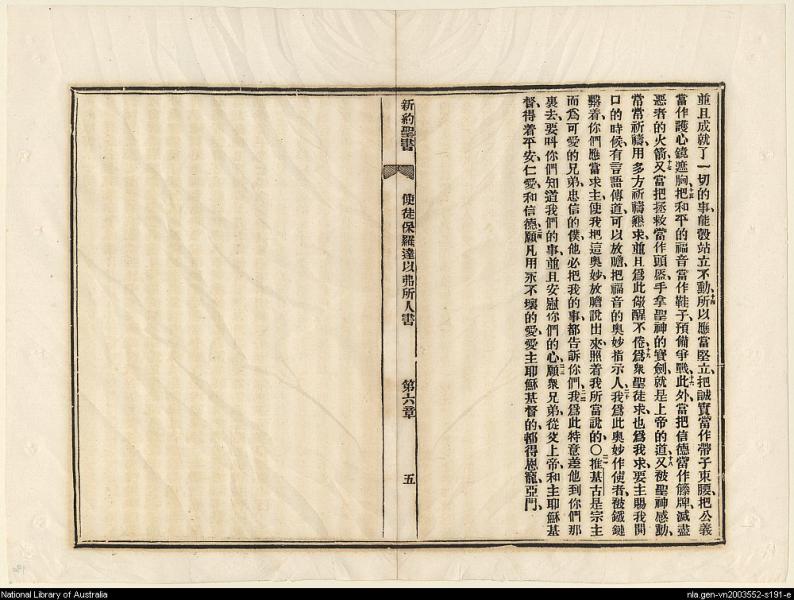 並且成就了一切的事、能彀站立不動、十四所以應當堅立、把誠實當作帶子束腰、把公義
當作護心鏡遮胸、十五把和平的福音當作鞋子、預備爭戰、十六此外當把信德當作籐牌、滅盡
惡者的火箭、十七又當把拯救當作頭盔、手拿聖神的寶劍、就是上帝的道、十八又被聖神感動、
常常祈禱、用多方祈禱懇求、並且爲此儆醒不倦、爲衆聖徒求、十九也爲我求、要主賜我開
口的時候、有言語傳道、可以放膽、把福音的奧妙指示人、二十我爲此奧妙作使者、被鐵鏈
繫着、你們應當求主、使我把這奧妙放膽說出來、照着我所當說的、〇二一推基古是宗主
而爲可愛的兄弟、忠信的僕、他必把我的事都告訴你們、二二我爲此特意差他到你們那
裏去、要叫你們知道我們的事、並且安慰你們的心、二三願衆兄弟從父上帝和主耶穌基
督得着平安、仁愛、和信德、二四願凡用永不壞的愛、愛主耶穌基督的、都得恩寵、亞門、
新約聖書 使徒保羅達以弗所人書 第六章 五
National Library of Australia
nla.gen-vn2003552-s191-e